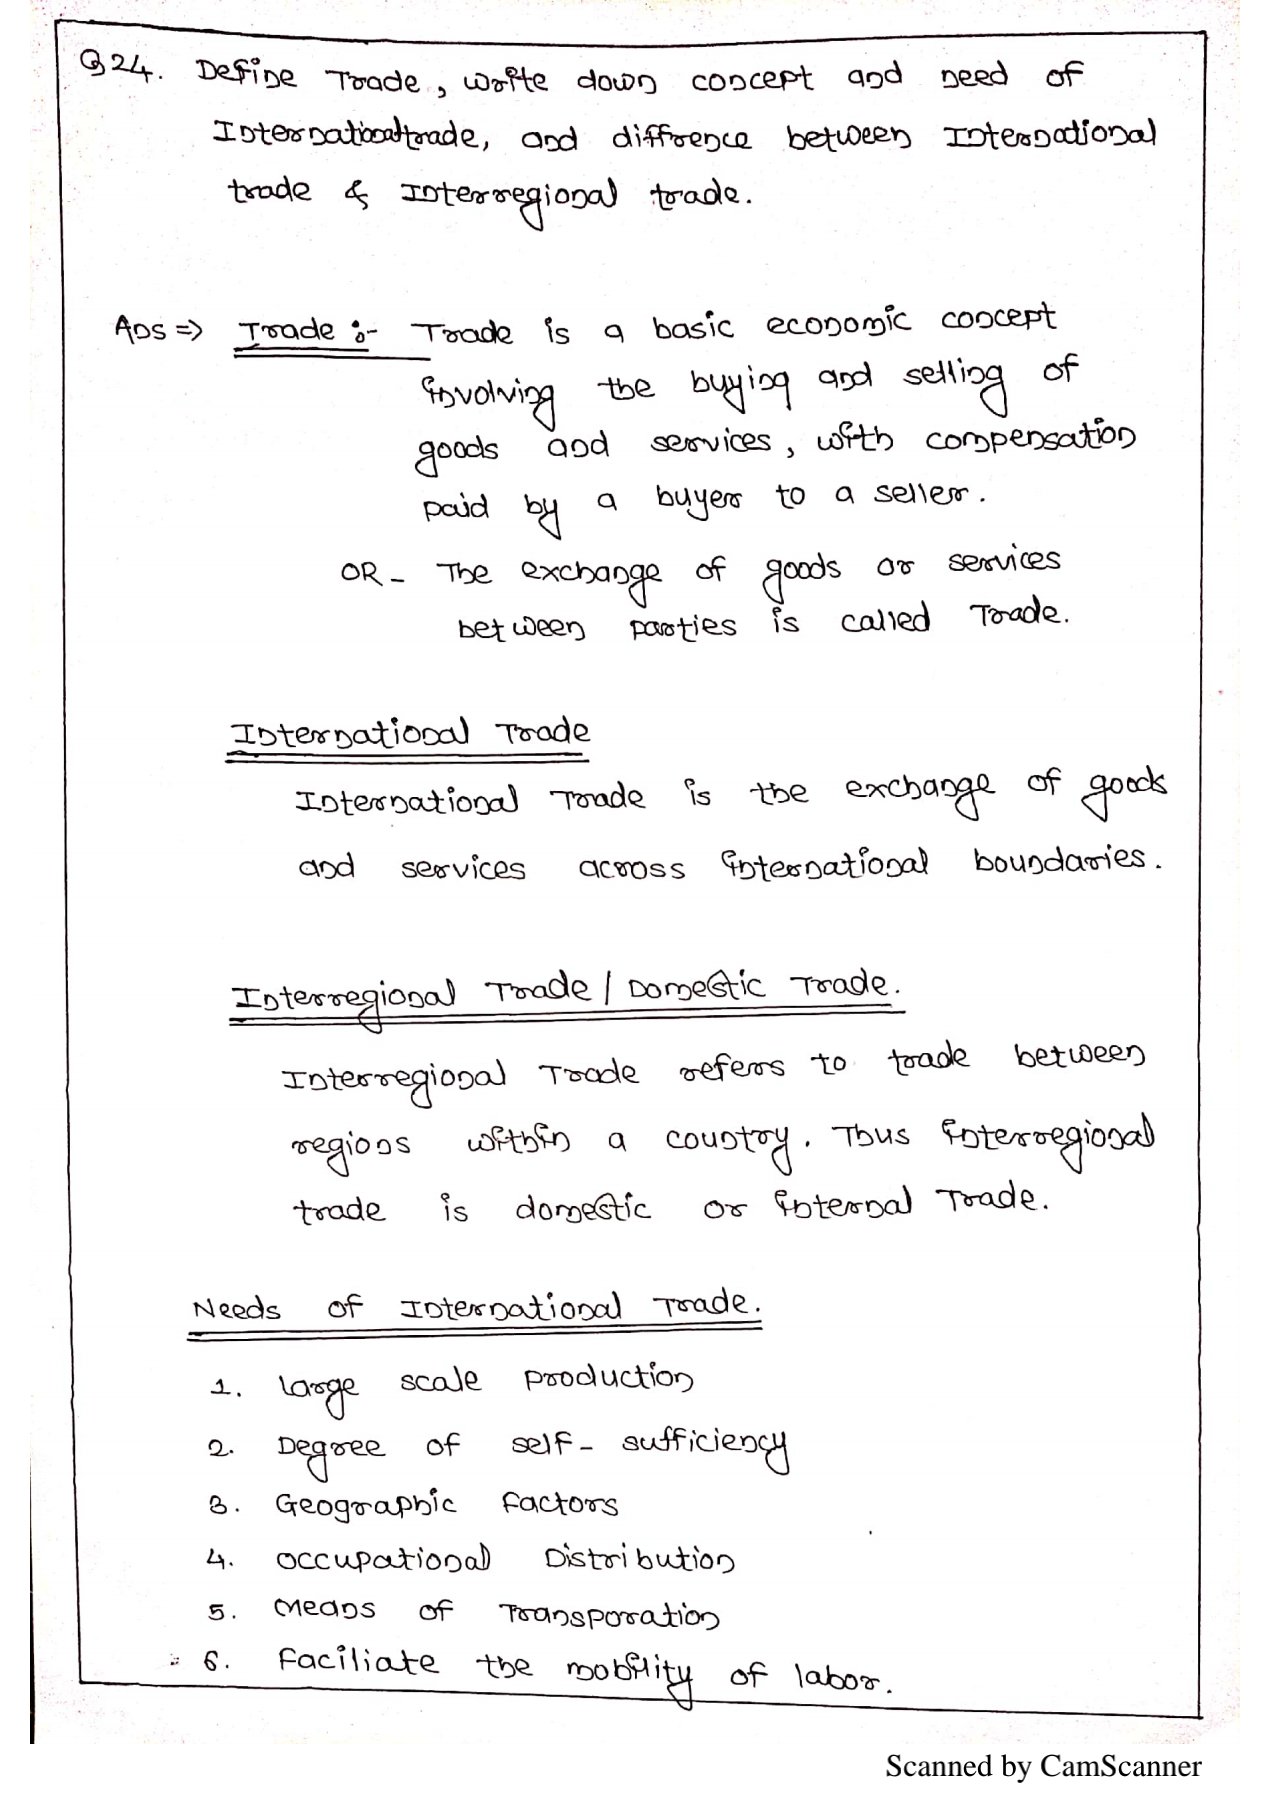 Q24. Define Trade, write down concept and need of
Internationaltrade, and diffrence between International
trade & Interregional trade.
Ans => Trade :- Trade is a basic economic concept
involving the buying and selling of
goods and services, with compensation
paid by a buyer to a seller.
OR - The exchange of goods or services
between parties is called Trade.
International Trade
International Trade is the exchange of goods
and services across international boundaries.
Interregional Trade / Domestic Trade.
Interregional Trade refers to trade between
regions within a country. Thus interregional
trade is domestic or internal Trade.
Needs of International Trade.
1. large scale production
2. Degree of self-sufficiency
3. Geographic factors
4. Occupational Distribution
5. Means of Transporation
6. Faciliate the mobility of labor.
Scanned by CamScanner